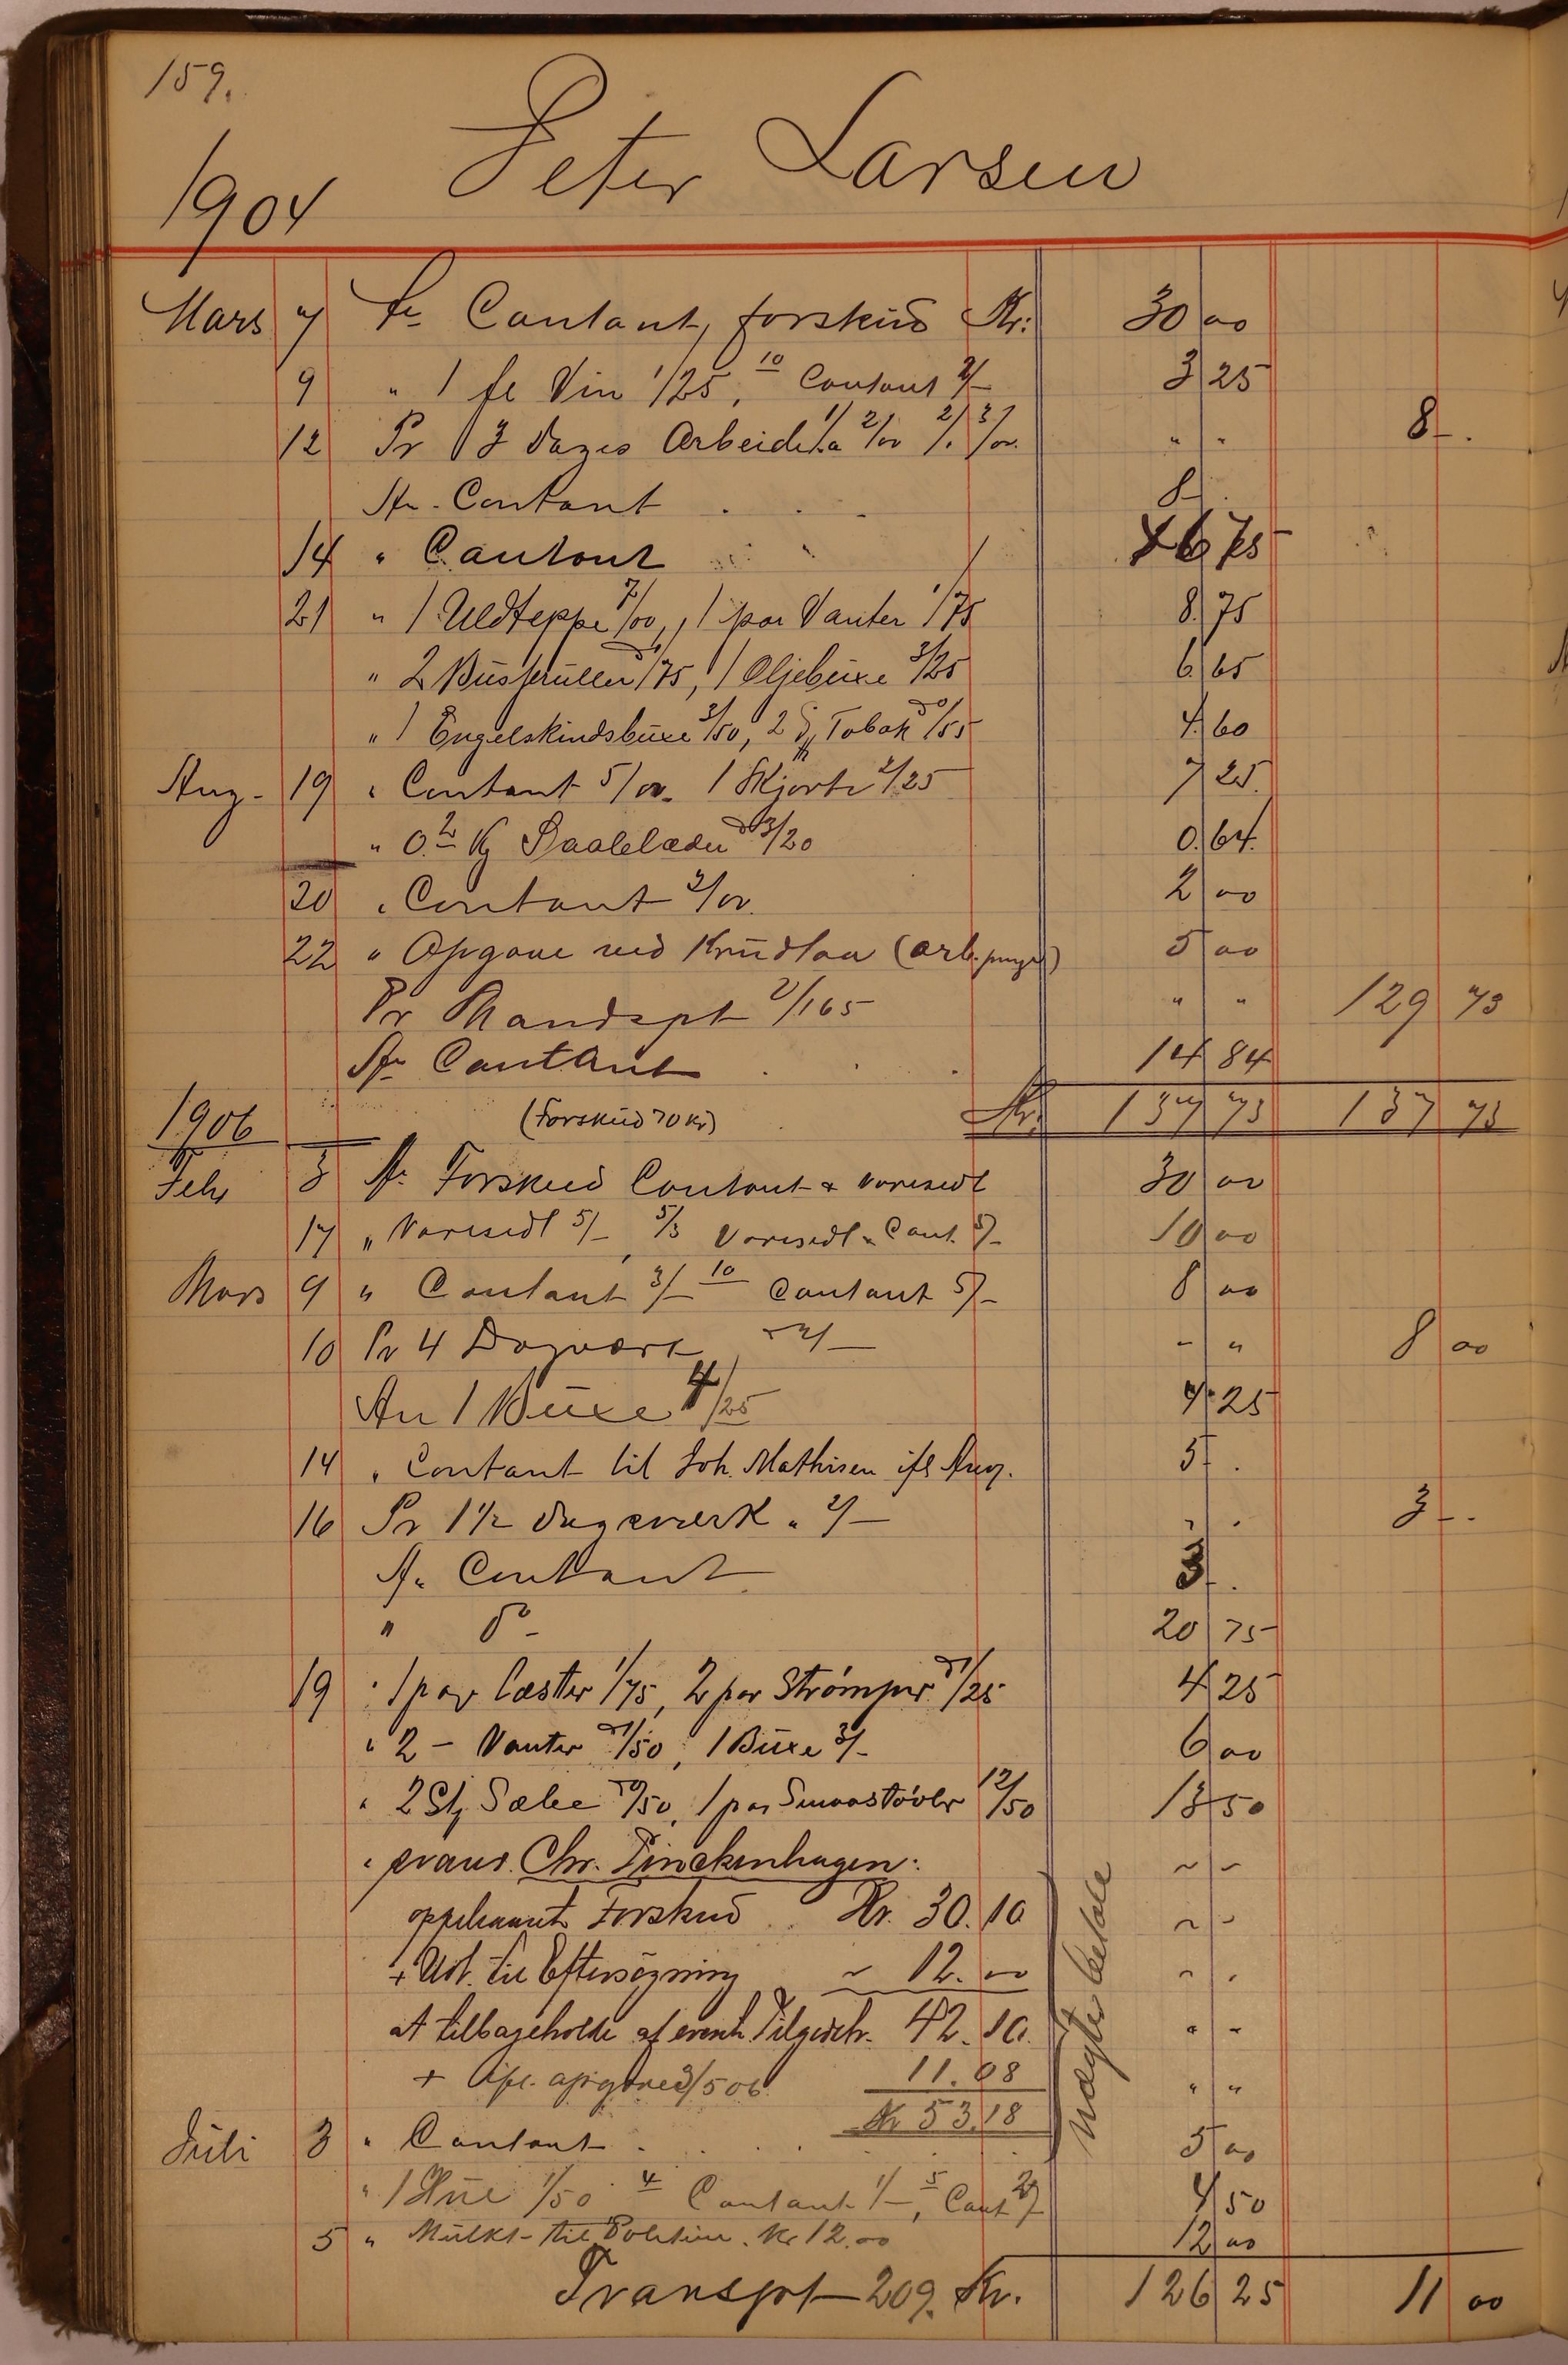 159.
Peter Larsen
1904
Mars 7 An Contant, forskud Kr: 30 00
9 " 1 fl Vin 1/25, 10 Contant 2/- 3 25
12 Pr 3 dages Arbeide 2/00 3/00 " " 8 -
An Contant 8 -
14 " Contant 46 75
21 " 1 Uldteppe 7/00, 1 par Vanter 1/75 8 75
" 2 Busseruller 1/75, 1 Oljebuxe 3/25 6 65
" 1 Engelskindsbuxe 3/50, 2 Tobak /55 4 60
Aug- 19 " Contant 5/00. 1 Skjorte 2/25 7 25
" 0.2 Kg Saalelæder a 3/20 0.64
20 " Contant 2/00. 2 00
22 " Opgave ved (arb.penge) 5 00
Pr Mandspt 2/165 " " 129 73
An Contant 14 84
(Forskud 70 Kr) Kr. 137 73 137 73
1906
Febr 3 An Forskud Contant & varesedl 30 00
17 " Varesedl 5/-, 5/3 Varesedl & Cont. 5/- 10 00
Mars 9 " Contant 3/- 10 Contant 5/- 8 00
10 Pr 4 Dagværk a 2/- " " 8 00
An 1 Buxe 4/25 4 25
14 " Contant til Joh. Mathisen ifl Anv. 5 -
16 Pr 1 1/2 dagsværk a 2/- " " 3 -
An Contant 3 -
" do - 20 75
19 " 1 par Læster 1/75, 2 par Strømper a 1/25 4 25
" 2 - Vanter a 1/50, 1 Buxe 3/- 6 00
" 2 St Sæbe /50, 1 par Smaastøvler 12/50 13 50
" Chr. Dinckenhagen:
oppebaaret Forskud Kr. 30.10
+ Udl. til Eftersøgning " 12.00
at tilbageholde af event. Tilgodeh. 42.10
+ 11.08
Kr 53.18
nægtes betale
Juli 3 " Contant 5 00
" 1 Hue 1/50 4 Contant 1/-, 5 Cont 2/- 4 50
5 " Mulkt til Politiet. Kr 12.00 12 00
Transpt 209. Kr. 126 25 11 00